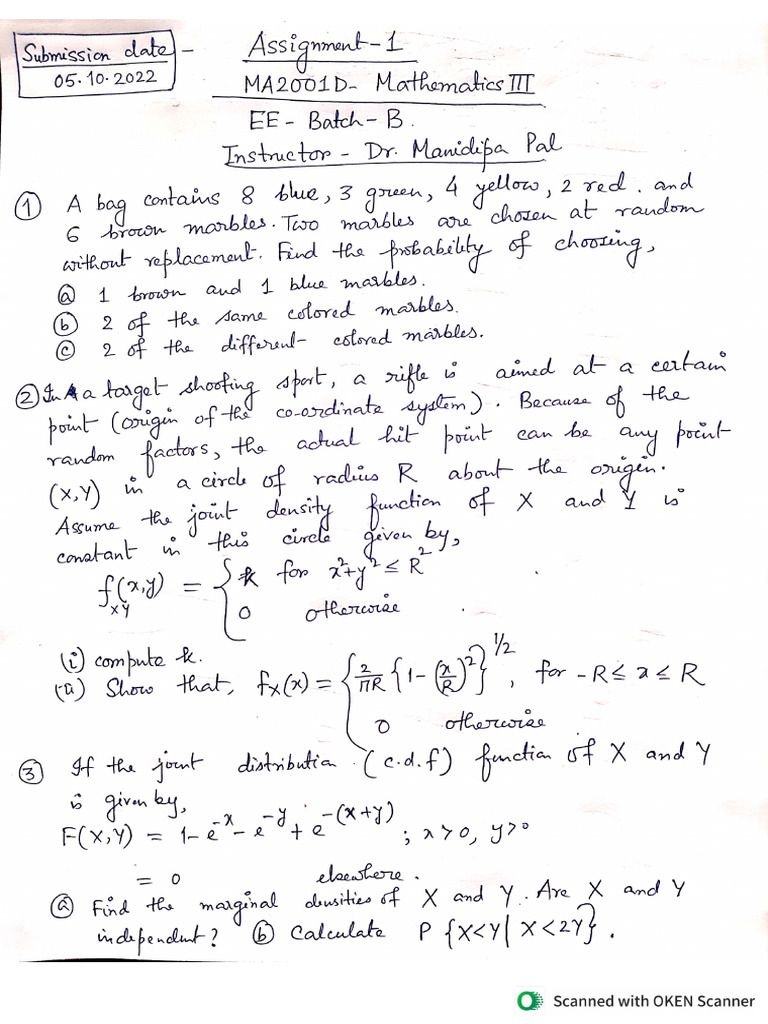 Submission date - Assignment-1
05.10.2022 MA2001D- Mathematics III
EE- Batch- B.
Instructor - Dr. Manidipa Pal
① A bag contains 8 blue, 3 green, 4 yellow, 2 red. and
6 brown marbles. Two marbles are chosen at random
without replacement. Find the probability of choosing,
ⓐ 1 brown and 1 blue marbles.
ⓑ 2 of the same colored marbles.
ⓒ 2 of the different- colored marbles.
② In a target shooting sport, a rifle is aimed at a certain
point (origin of the co-ordinate system). Because of the
random factors, the actual hit point can be any point
(X,Y) in a circle of radius R about the origin.
Assume the joint density function of X and Y is
constant in this circle given by,
f_XY(x,y) = { k for x²+y² ≤ R²
0 otherwise
(i) compute k.
(ii) Show that, fx(x) = { 2/πR {1-(x/R)²}^1/2, for -R ≤ x ≤ R
0 otherwise
③ If the joint distribution (c.d.f) function of X and Y
is given by,
F(X,Y) = 1- e^-x - e^-y + e^-(x+y) ; x>0, y>0
= 0 elsewhere.
ⓐ Find the marginal densities of X and Y. Are X and Y
independent? ⓑ Calculate P {X<Y| X<2Y}.
Scanned with OKEN Scanner